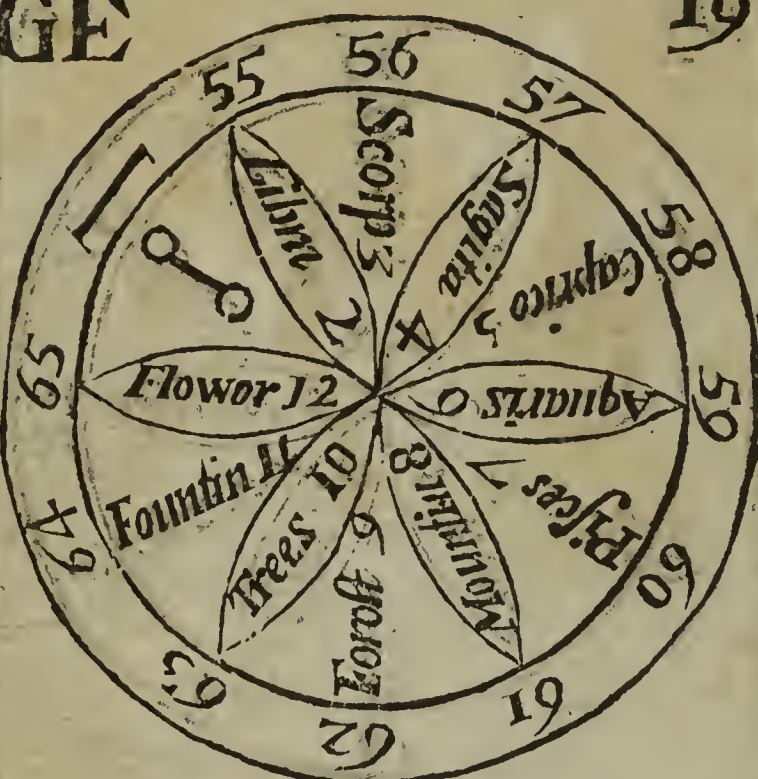 GE
19
55
56
57
58
59
60
61
62
63
64
65
I
Libra 2
Scorp 3
Sagita 4
Caprico 5
Aquaris 6
Piſces 7
8
9
Trees 10
Fountin 11
Flowor 12